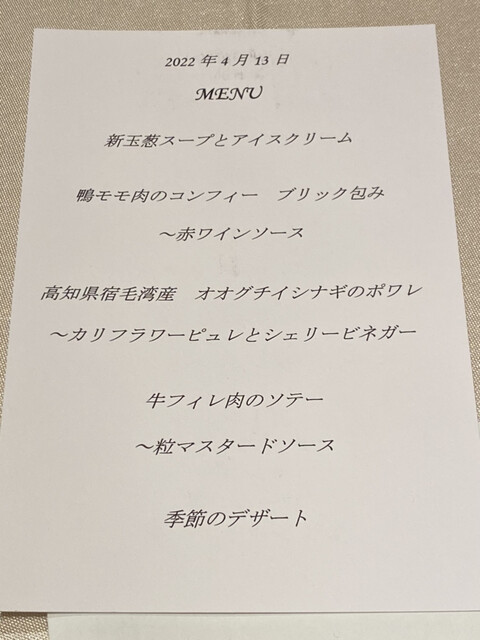 2022 年 4 月 13 日
MENU
新玉葱スープとアイスクリーム
鴨モモ肉のコンフィー　ブリック包み
～赤ワインソース
高知県宿毛湾産　オオグチイシナギのポワレ
～カリフラワーピュレとシェリービネガー
牛フィレ肉のソテー
～粒マスタードソース
季節のデザート